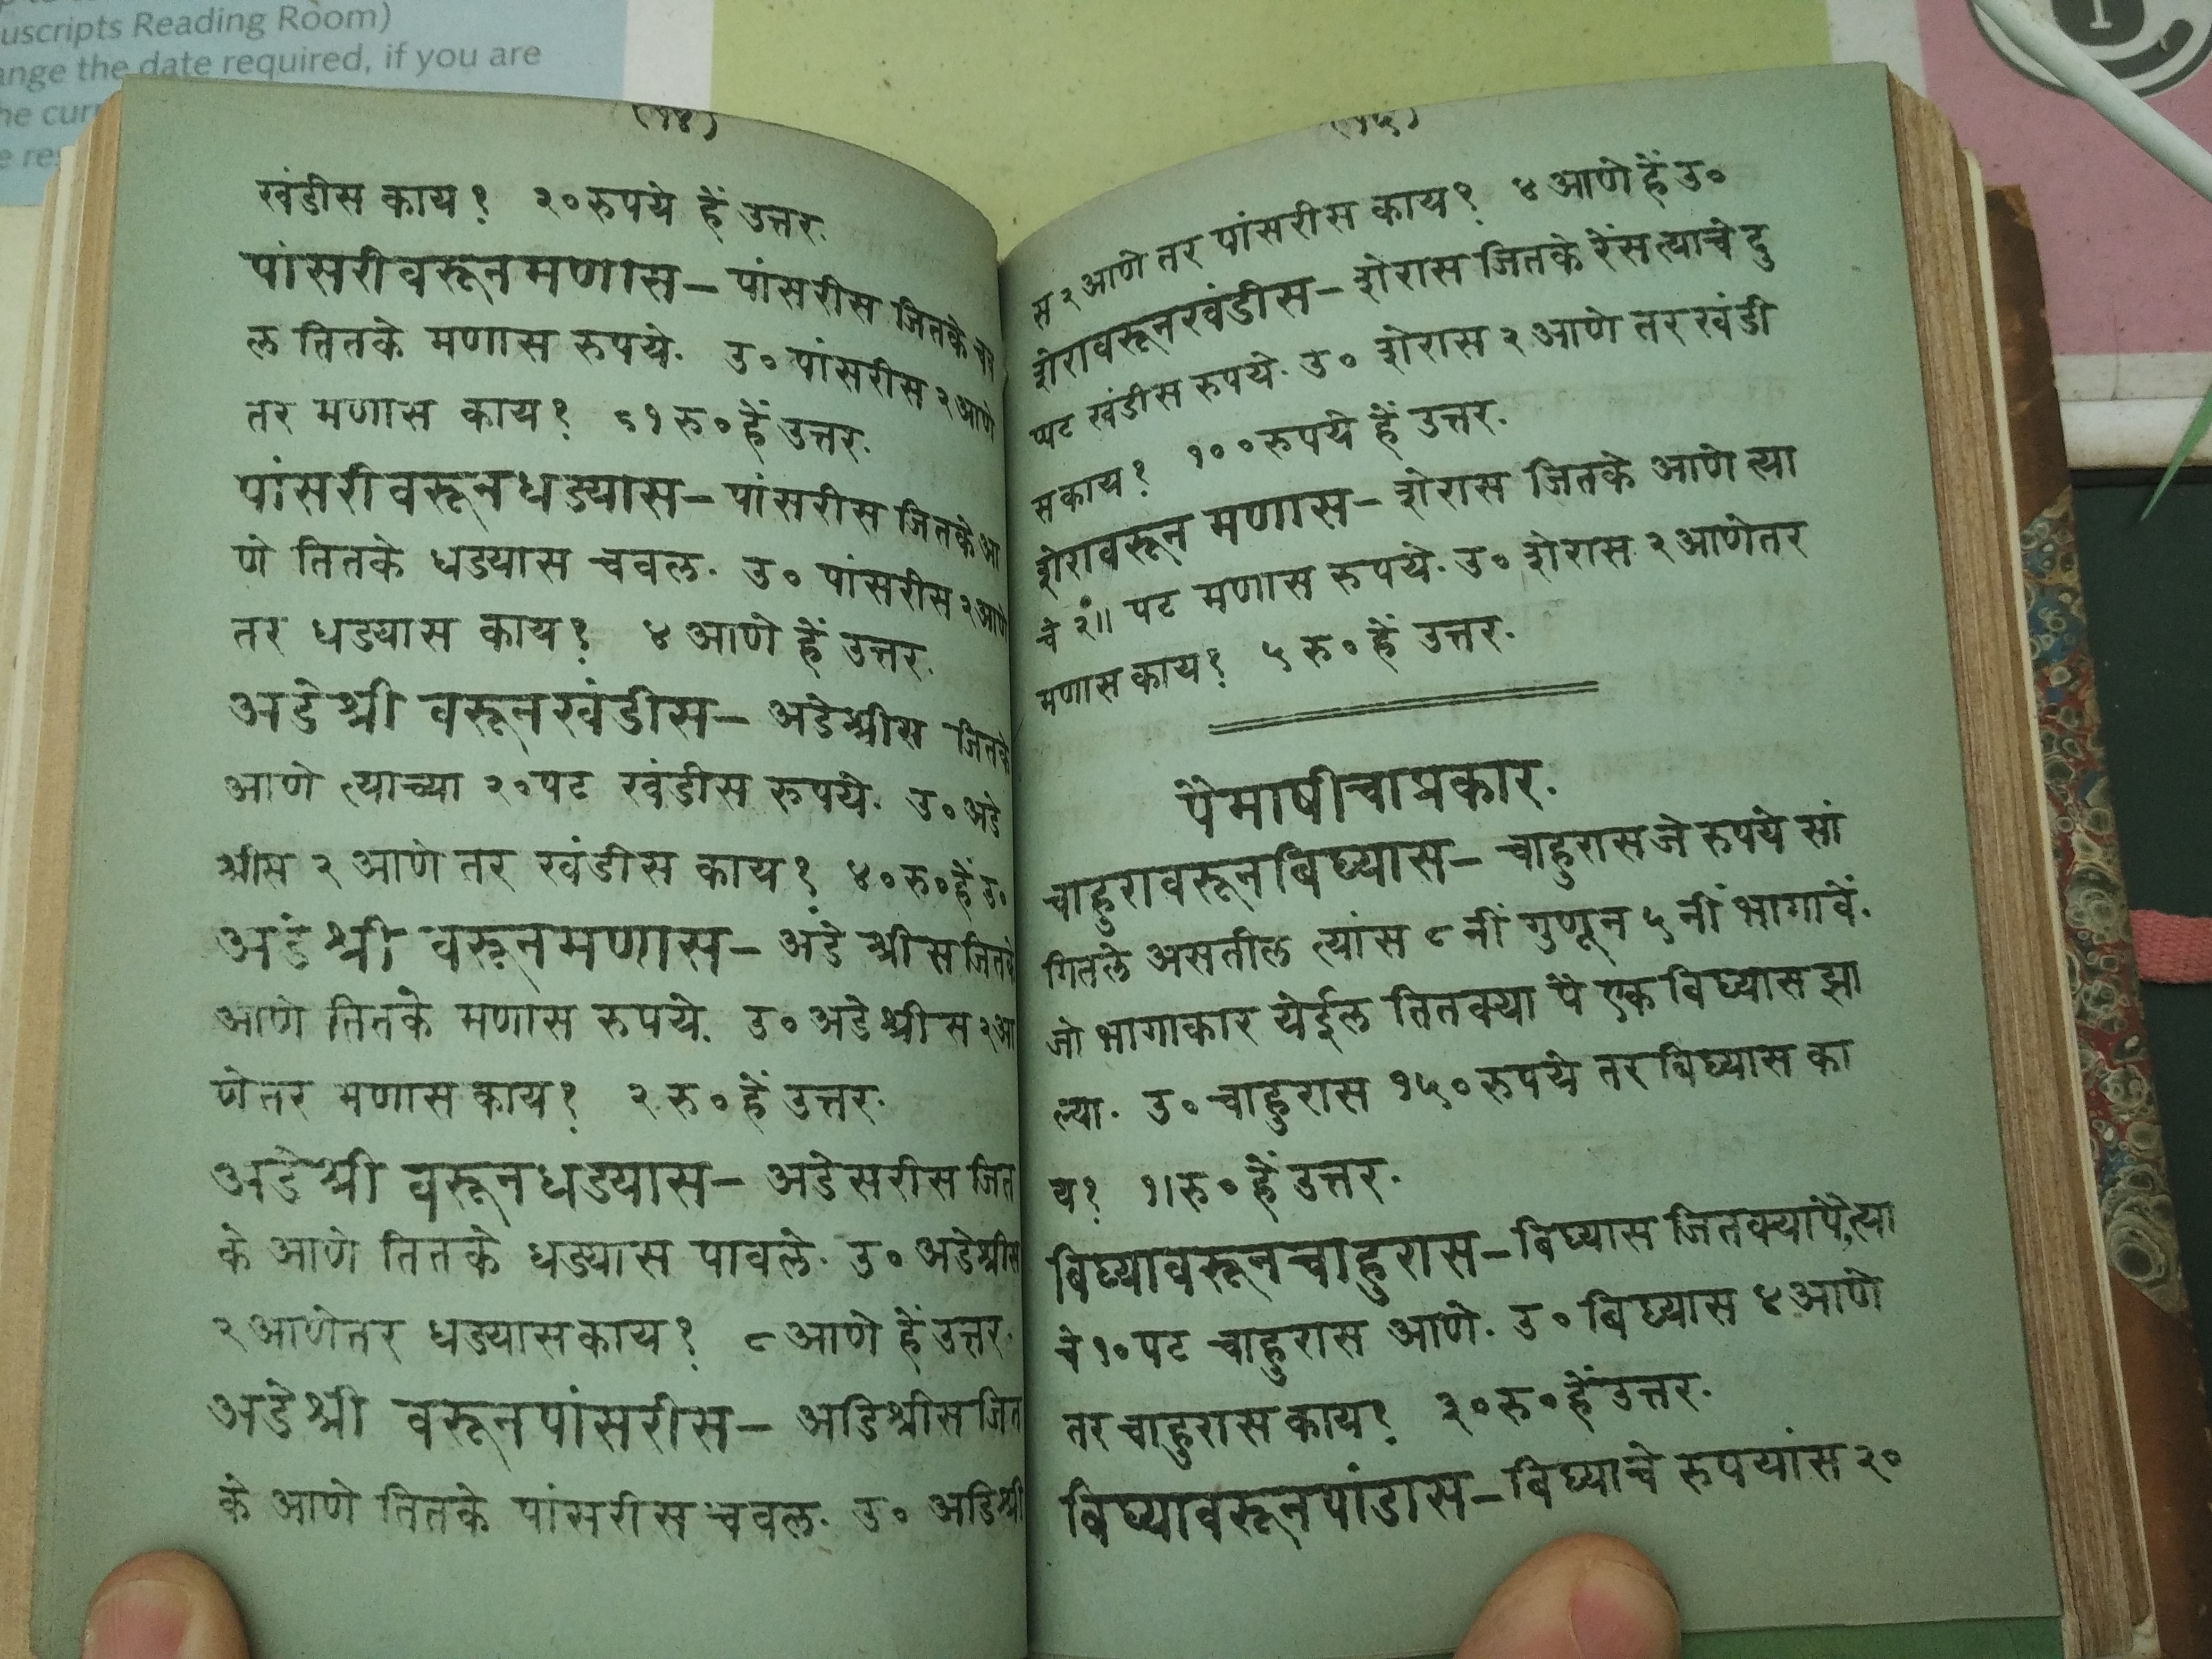 uscripts Reading Room)
ange the date required, if you are
he curr
e res
(१४)
खंडीस काय? २० रुपये हें उत्तर.
पांसरीवरून मणास— पांसरीस जितके चव
ल तितके मणास रुपये. उ० पांसरीस २ आणे
तर मणास काय? ६१ रु० हें उत्तर.
पांसरीवरून धड्यास— पांसरीस जितके आ
णे तितके धड्यास चवल. उ० पांसरीस २ आणे
तर धड्यास काय? ४ आणे हें उत्तर.
अडेश्री वरून खंडीस— अडेश्रीस जितके
आणे त्याच्या २० पट खंडीस रुपये. उ० अडे
श्रीस २ आणे तर खंडीस काय? ४० रु० हें उ०
अडेश्री वरून मणास— अडेश्रीस जितके
आणे तितके मणास रुपये. उ० अडेश्रीस २ आ
णे तर मणास काय? २ रु० हें उत्तर.
अडेश्री वरून धड्यास— अडेसरीस जित
के आणे तितके धड्यास पावले. उ० अडेश्रीस
२ आणे तर धड्यास काय? ८ आणे हें उत्तर.
अडेश्री वरून पांसरीस— अडिश्रीस जित
के आणे तितके पांसरीस चवल. उ० अडिश्री
(१५)
स २ आणे तर पांसरीस काय? ४ आणे हें उ०
शेरावरून खंडीस— शेरास जितके रेंस त्याचे दु
प्पट खंडीस रुपये. उ० शेरास २ आणे तर खंडी
स काय? १०० रुपये हें उत्तर.
शेरावरून मणास— शेरास जितके आणे त्या
चे २॥ पट मणास रुपये. उ० शेरास २ आणे तर
मणास काय? ५ रु० हें उत्तर.
पैमाषीचा प्रकार.
चाहुरावरून बिघ्यास— चाहुरास जे रुपये सां
गितले असतील त्यांस ८ नीं गुणून ५ नीं भागावें.
जो भागाकार येईल तितक्या पै एक बिघ्यास झा
ल्या. उ० चाहुरास १५० रुपये तर बिघ्यास का
य? १। रु० हें उत्तर.
बिघ्यावरून चाहुरास— बिघ्यास जितक्या पै, त्या
चे १० पट चाहुरास आणे. उ० बिघ्यास ४ आणे
तर चाहुरास काय? ३० रु० हें उत्तर.
बिघ्यावरून पांडास— बिघ्याचे रुपयांस २०